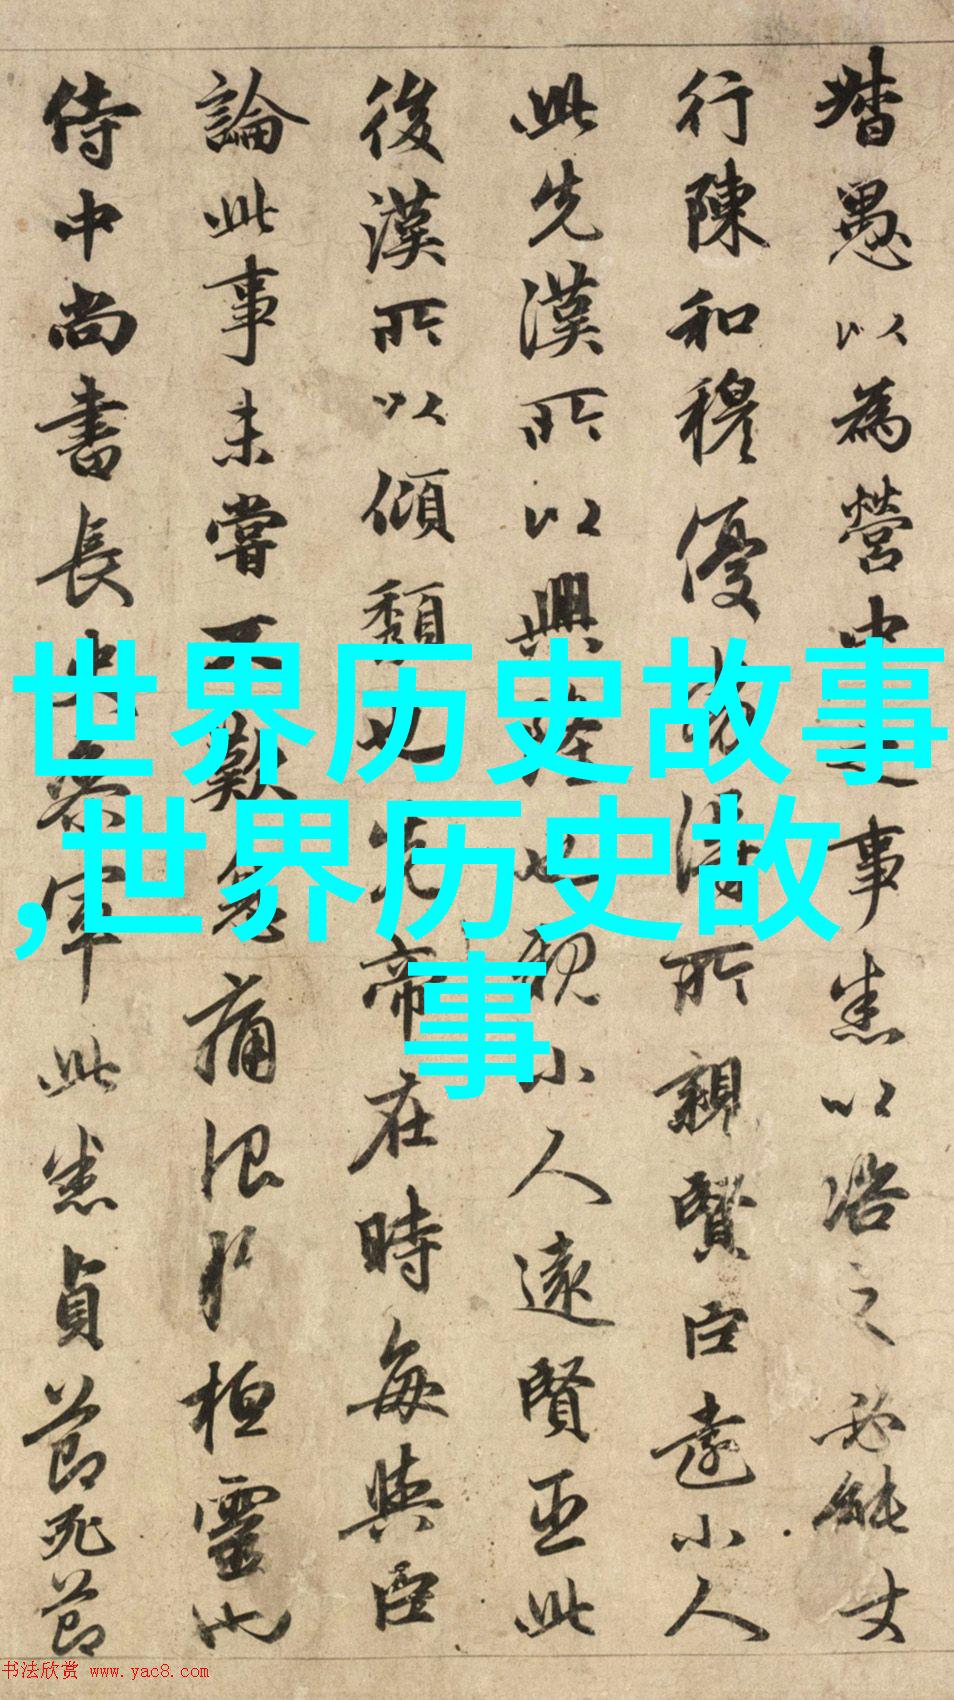 督愚以為營中之事悉以咨之必能丈
行陳和穆優劣得所親賢臣遠小人
此先漢所以興隆也親小人遠賢臣此
後漢所以傾頹也先帝在時每與臣
論此事未嘗不歎息痛恨於桓靈也
侍中尚書長史參軍此悉貞節死節
世界历史故事
,世界历史故
事
书法欣赏 www.yac8.com